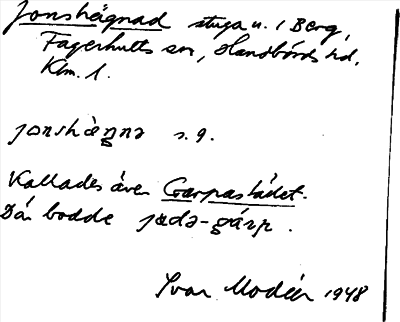 Jonshägnad stuga u. i Berg,
Fagerhults sn, Handbörds hd,
Klm. l.
jonshæŋnə s. g.
Kallades även Garpastället.
Där bodde jædə-gárp.
Ivar Modéer 1948